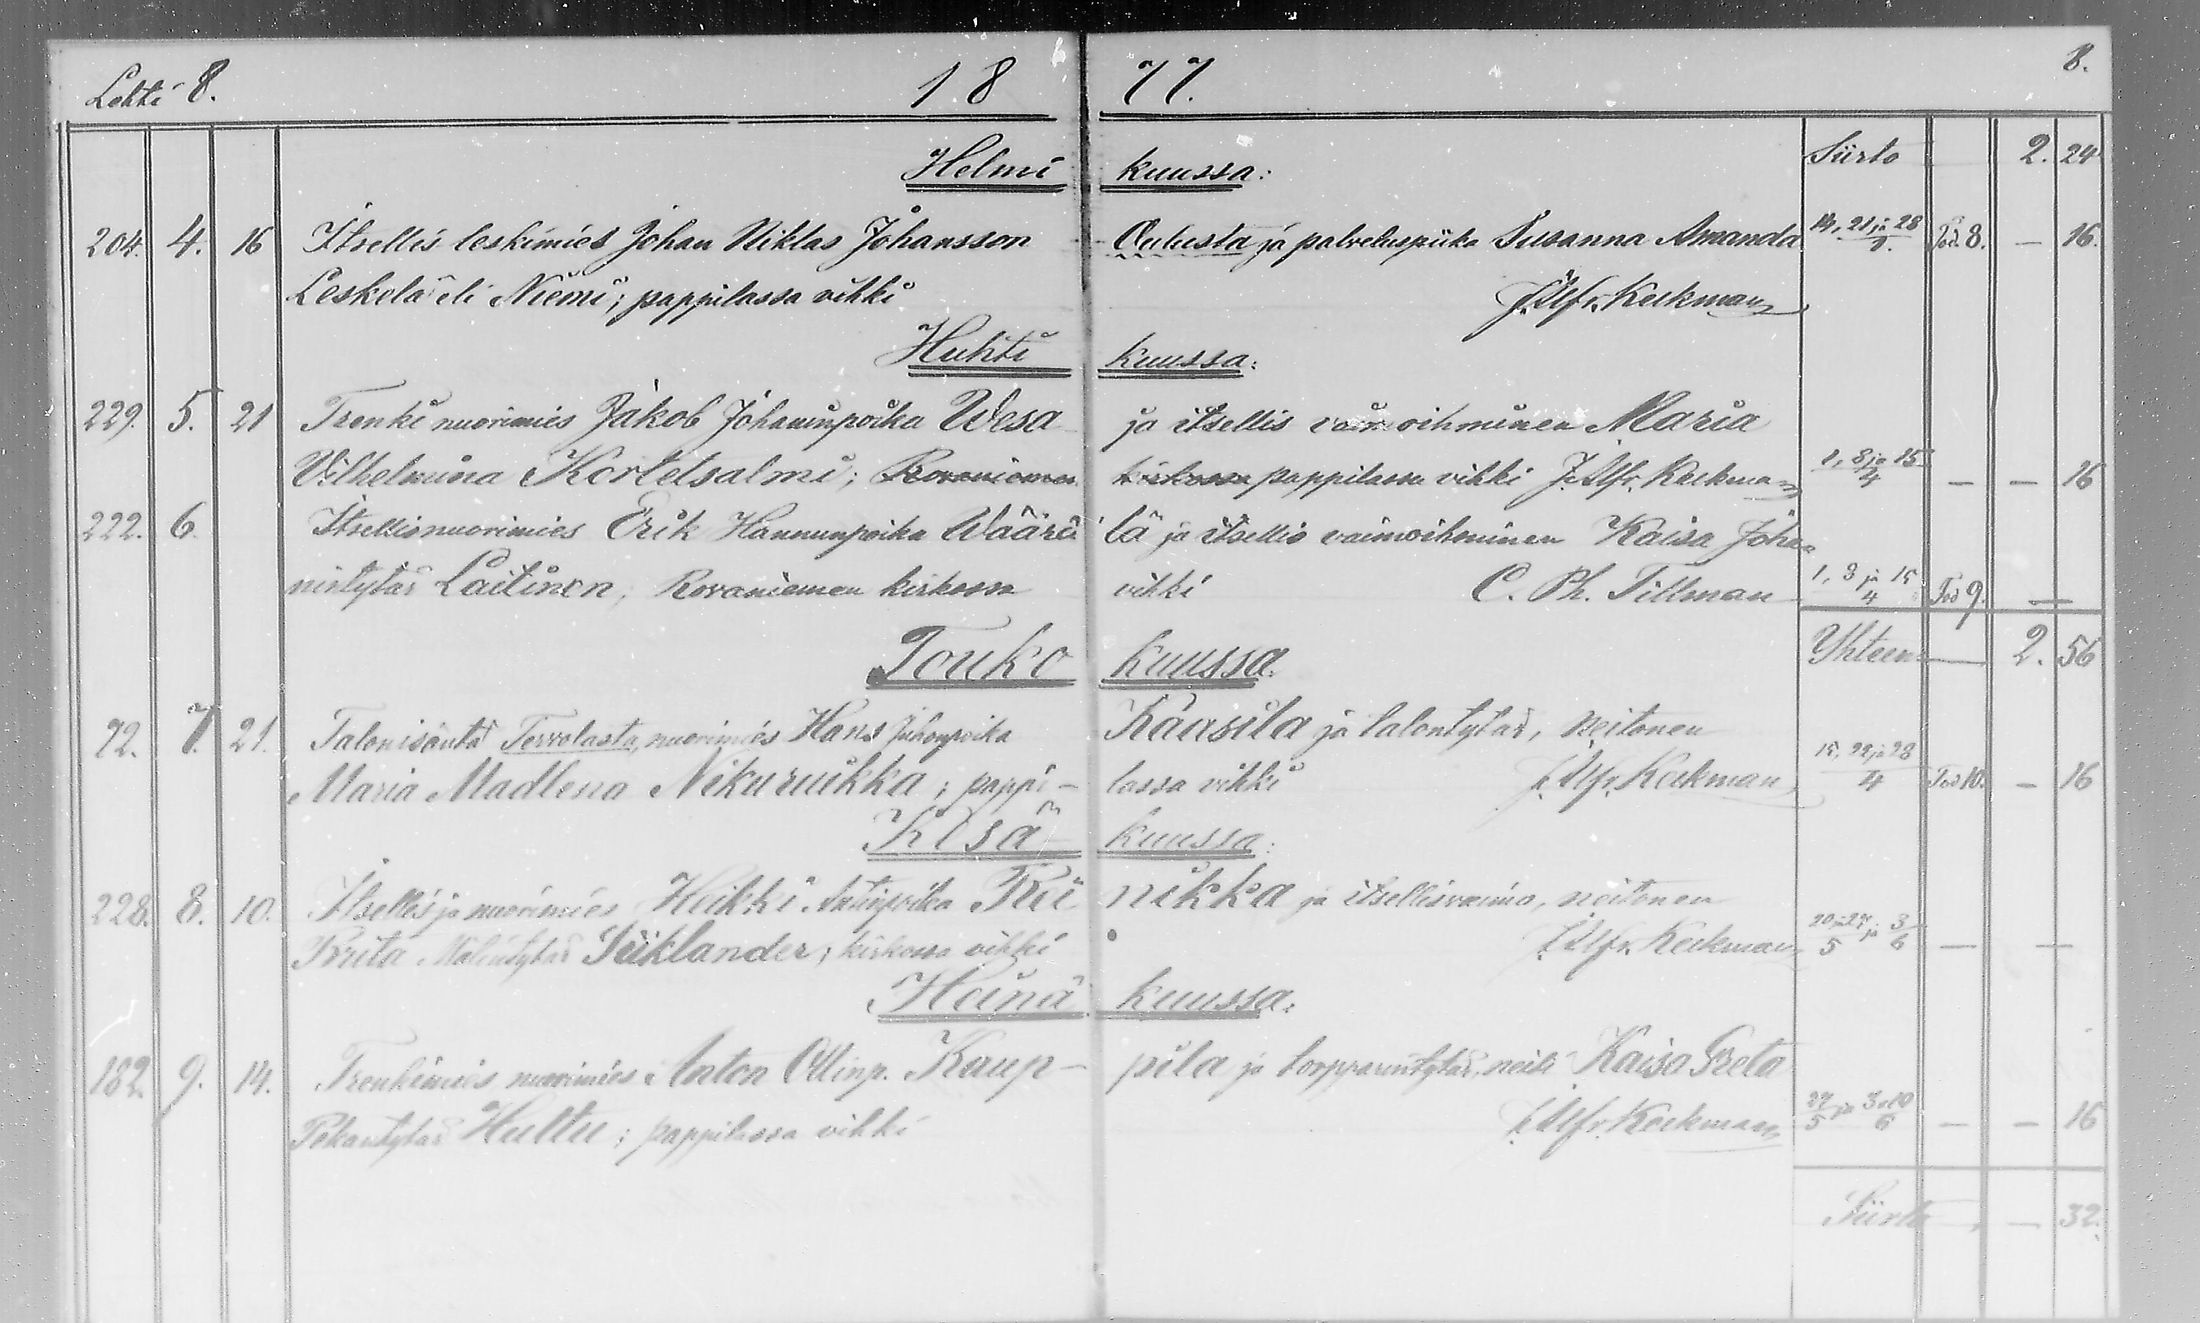 Lehti 8. 18 77. 8.
Helmi kuussa: Siirto 2. 24
204. 4. 16 Itsellis leskimies Johan Niklas Johansson Oulusta ja palveluspiika Susanna Amanda 14, 21 ja 28/1. Tod. 8. — 16.
Leskelä eli Niemi; pappilassa vihki J. Alfr. Keckman
Huhti kuussa:
229. 5. 21 Trenki nuorimies Jakob Johaninpoika Wesa ja itsellis vaimoihminen Maria
Vilhelmiina Kortetsalmi; Rovaniemen kirkossa pappilassa vihki J. Alfr. Keckman 1, 8 ja 15/4 — — 16
222. 6. Itsellisnuorimies Erik Hannunpoika Wääri lä ja itsellis vaimoihminen Kaisa Joha-
nintytär Laitinen; Rovaniemen kirkossa vihki C. Ph. Tillman 1, 8 ja 15/4 Tod 9. —
Touko kuussa. Yhteen — 2. 56
72. 7. 21. Talonisäntä Tervolasta, nuorimies Hans Juhonpoika Kaasila ja talontytär, neitonen
Maria Madlena Nikurukka; pappi- lassa vihki J. Alfr. Keckman 15, 22 ja 28/4 Tod 10. — 16
Kesä kuussa:
228. 8. 10. Itsellis ja nuorimies Heikki Antinpoika Rii nikka ja itsellisvaimo, neitonen
Priita Siiklander; kirkossa vihki J. Alfr. Keckman 20 ja 27/5 ja 3/6 — —
Heinä kuussa:
182. 9. 14. Trenkimies nuorimies Anton Ollinp. Kaup- pila ja torpparintytär, neiti Kaisa Greta
Pekantytär Huttu; pappilassa vihki J. Alfr. Keckman 27/5 ja 3 10/6 — — 16
Siirto — — 32.